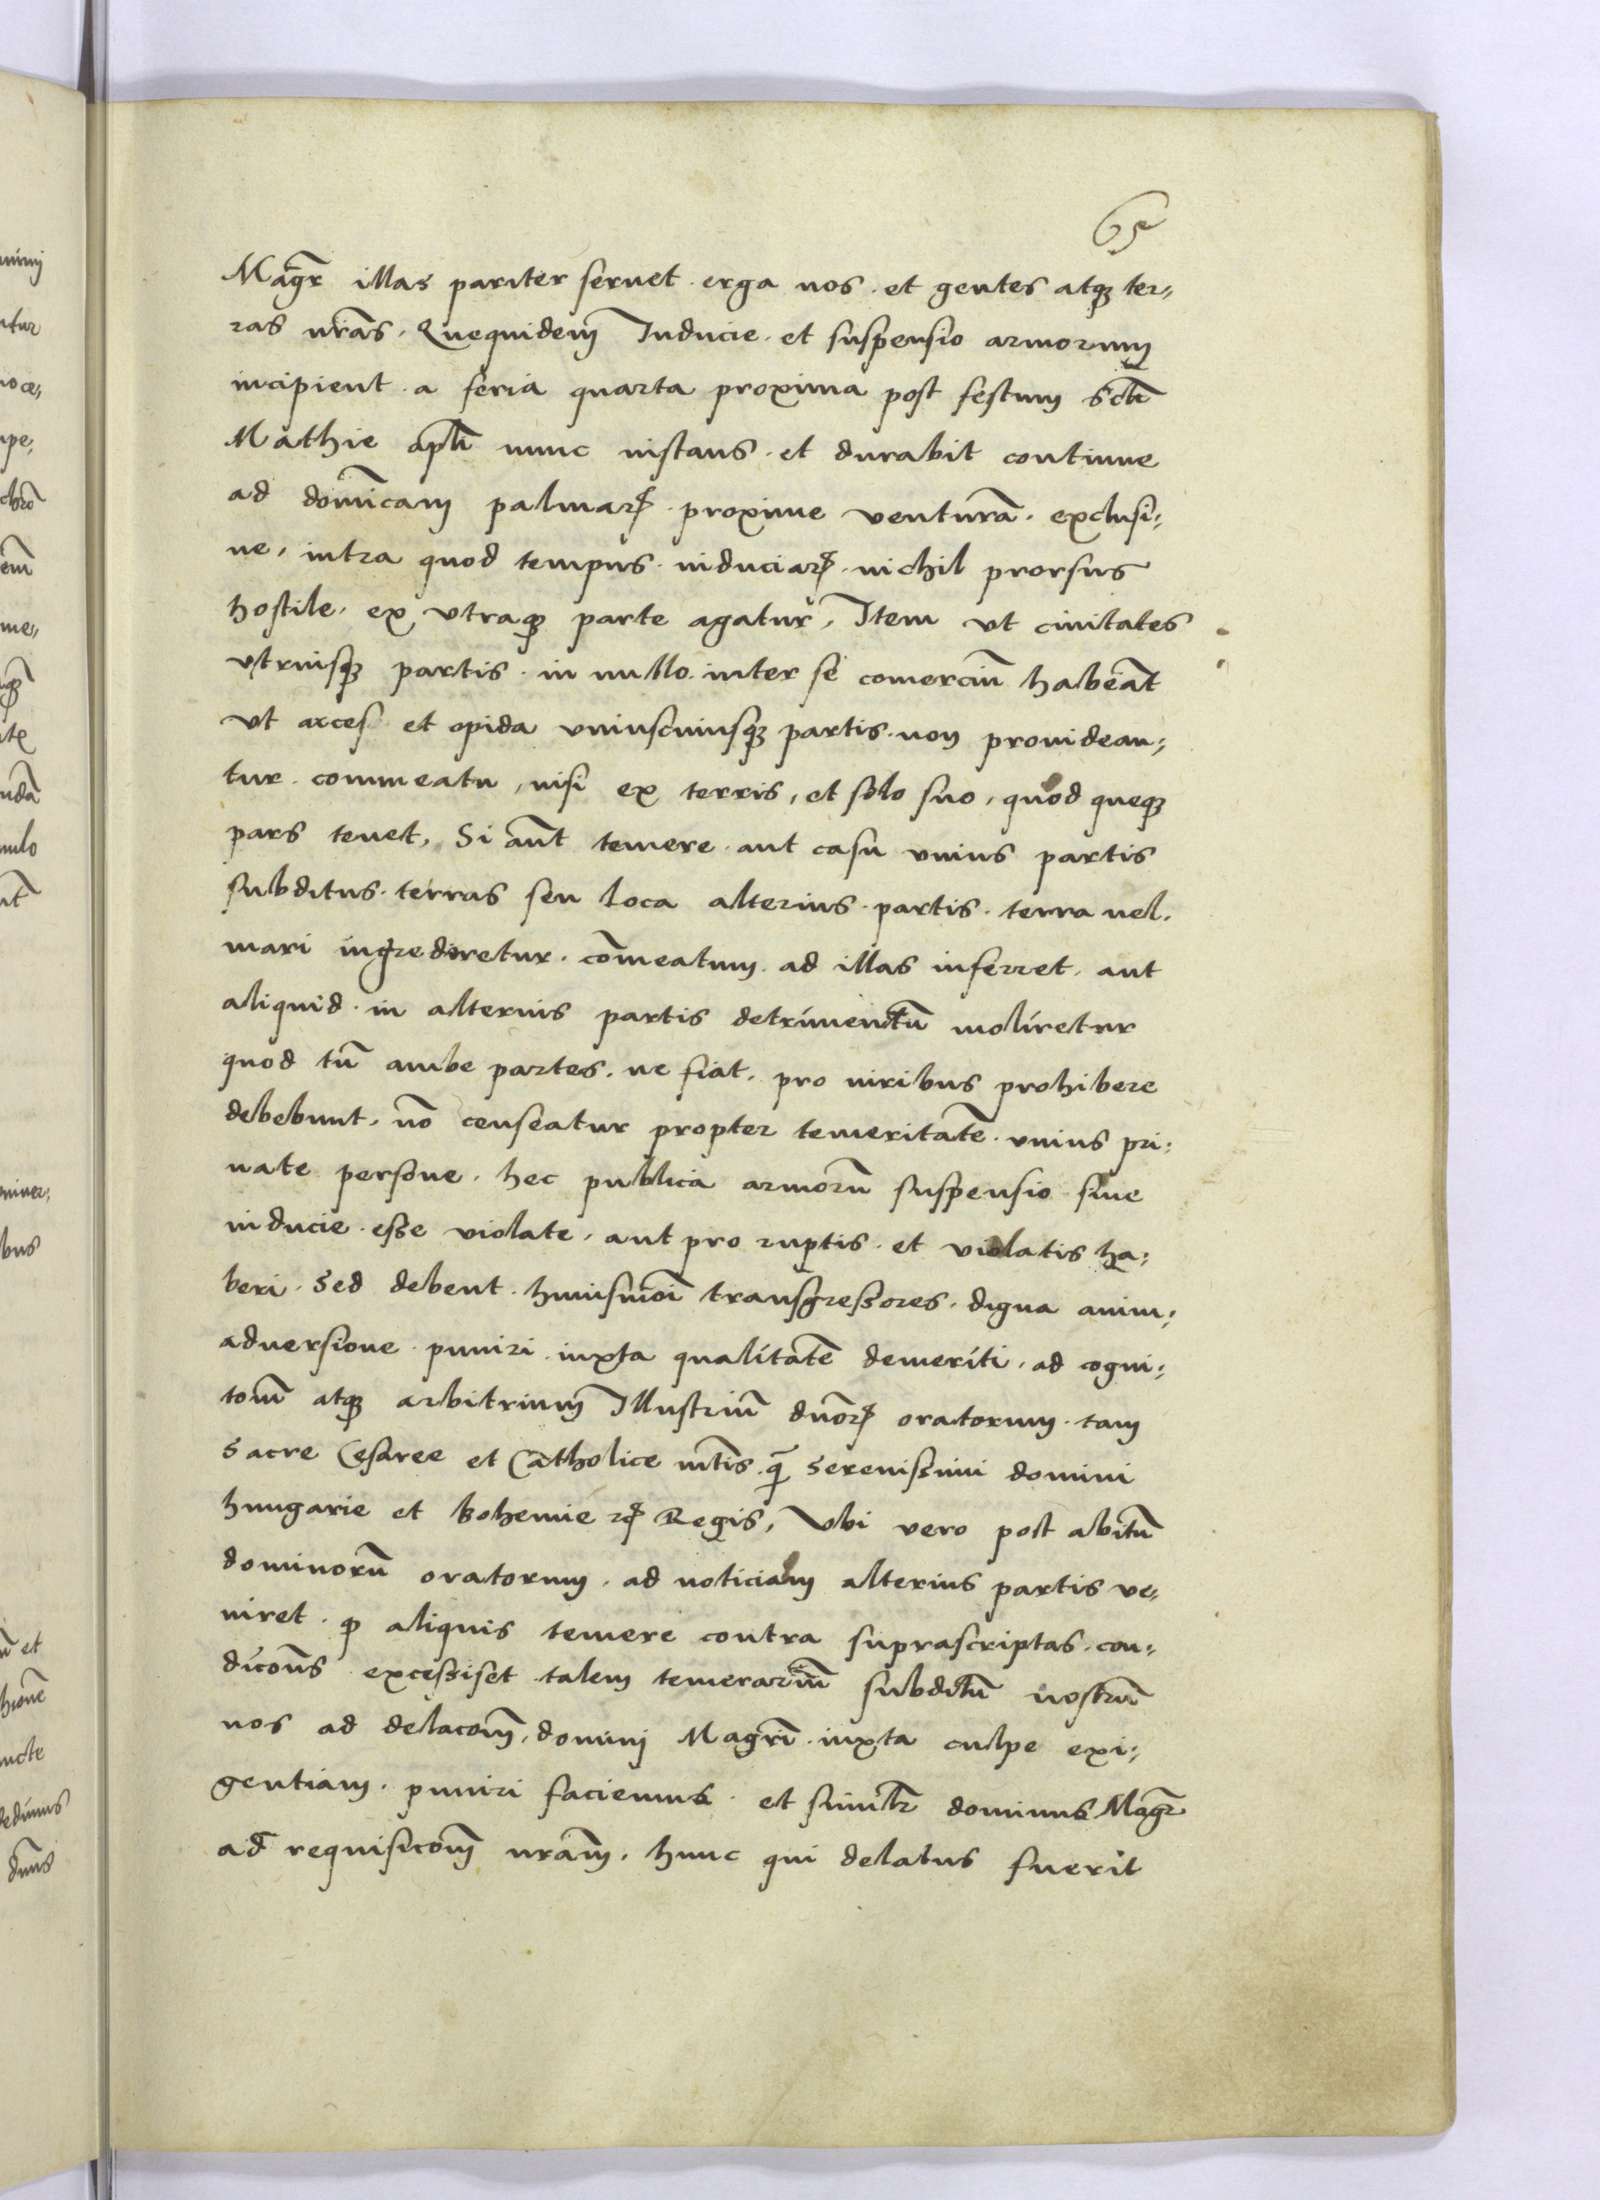 65
Magr̃ illas pariter seruet. erga nos. et gentes atqꝫ ter„
ras nr̃as. Quequidem Inducie. et suspensio armorum
incipient. a feria quarta proxima post festum Scti̅
Mathie apl̃i nunc instans. et durabit continue
ad domi̅cam palmarꝝ. proxime ventura̅. exclusi:
ue, intra quod tempus. induciarꝝ. nichil prorsus
hostile. ex vtraqꝫ parte agatur, Item vt ciuitates
vtriusqꝫ partis. in nullo. inter se comerciu̅ habea̅t
vt arces et opida vniuscuiusqꝫ partis. non prouidean:
tur. commeatu, nisi ex terris, et solo suo, quod queqꝫ
pars tenet, Si au̅t temere. aut casu vnius partis
subditus. terras seu loca alterius. partis. terra uel.
mari ingrediretur. co̅meatum. ad illas inferret. aut
aliquid. in alterius partis detrimentu̅ moliretur
quod tu̅ ambe partes. ne fiat. pro viribus prohibere
debebunt. no̅ censeatur propter temeritate̅. vnius pri:
uate persone. hec publica armoru̅ suspensio siue
inducie. esse violate, aut pro ruptis. et violatis ha:
beri. Sed debent. huiusmo̅i transgressores. digna anim:
aduersione. puniri. iuxta qualitate̅ demeriti, ad cogni:
tom̅ atqꝫ arbitrium Illustriu̅ dn̅orꝝ oratorum. tam
Sacre Cesaree et Catholice mt̅is. qꝫ̅ Serenissimi domini
hungarie et Bohemie ꝛc̃ Regis, Vbi vero post abitu̅
dominoru̅ oratorum. ad noticiam alterius partis ve„
niret. ꝙ aliquis temere contra suprascriptas. con„
dico̅ns excessiset. talem temerariu̅ subditu̅ nostru̅
nos ad delaco̅m, domini Magri̅. iuxta culpe exi:
gentiam. puniri faciemus. et simil̃r dominus Magr̃
ad requisico̅m nr̃am. hunc qui delatus fuerit